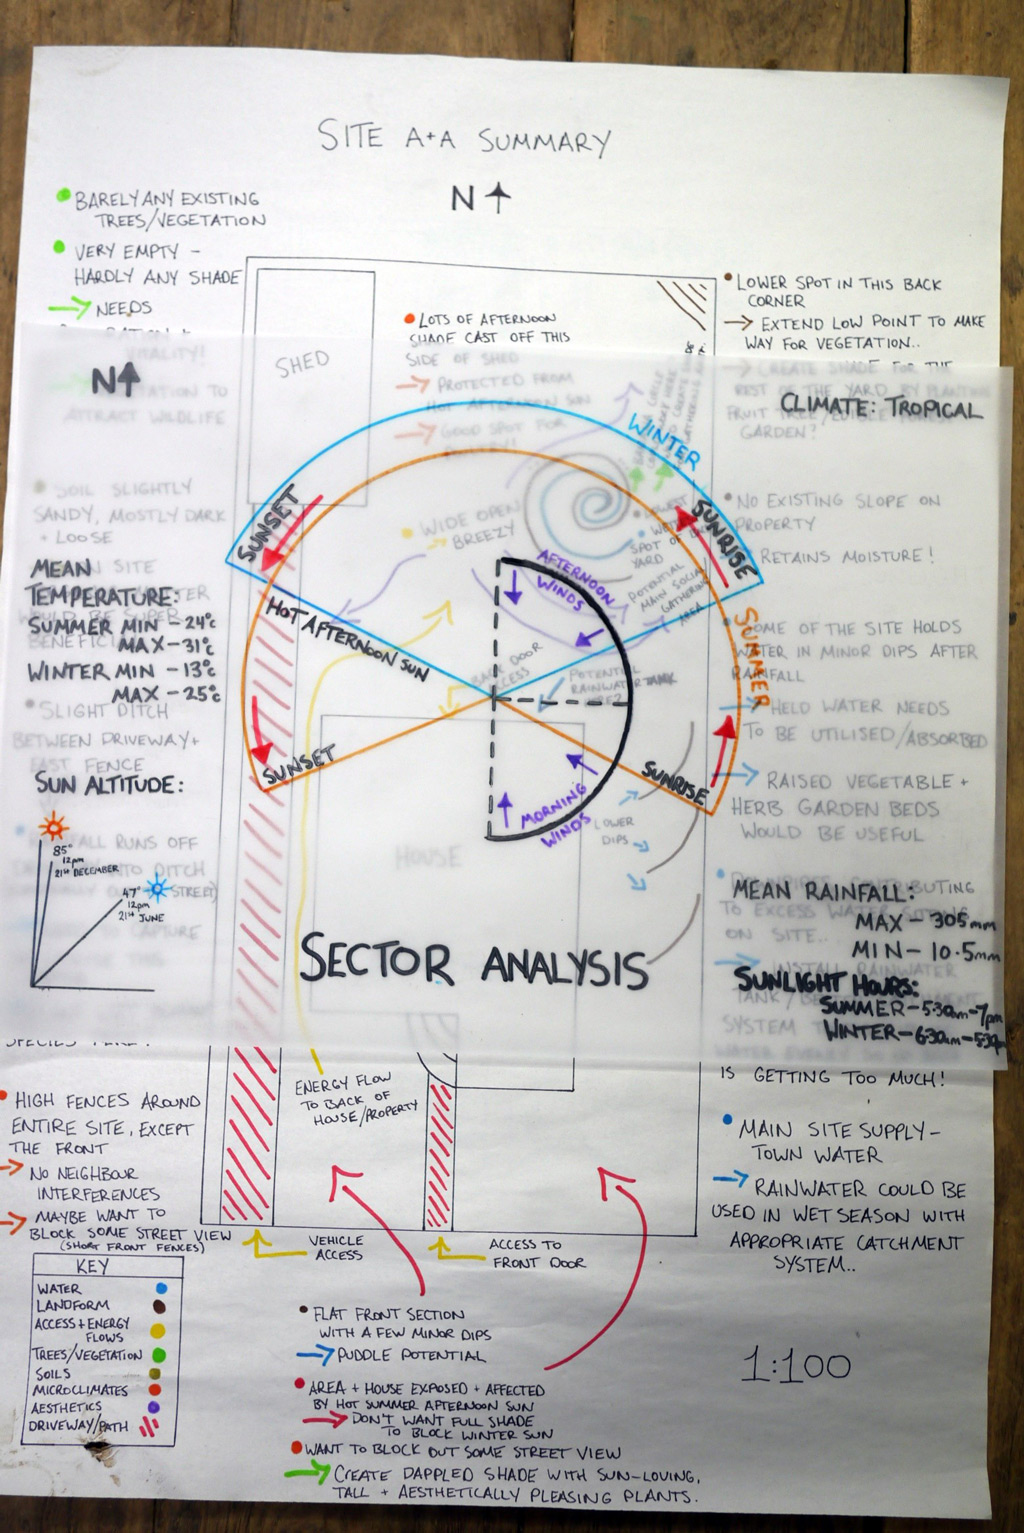 SITE A+A SUMMARY
N
• BARELY ANY EXISTING
TREES/VEGETATION
• VERY EMPTY -
HARDLY ANY SHADE
→ NEEDS
VITALITY!
ATTRACT WILDLIFE
SHED
• LOTS OF AFTERNOON
SHADE CAST OFF THIS
SIDE OF SHED
→ PROTECTED FROM
HOT AFTERNOON SUN
→ GOOD SPOT FOR
• LOWER SPOT IN THIS BACK
CORNER
→ EXTEND LOW POINT TO MAKE
WAY FOR VEGETATION..
→ CREATE SHADE FOR THE
REST OF THE YARD BY PLANTING
GARDEN?
N
CLIMATE: TROPICAL
WINTER
SUNSET
SUNRISE
• SOIL SLIGHTLY
SANDY, MOSTLY DARK
+ LOOSE
• WIDE OPEN
→ BREEZY
SPOT OF
YARD
POTENTIAL
MAIN SOCIAL
GATHERING
AREA
• NO EXISTING SLOPE ON
PROPERTY
RETAINS MOISTURE!
AFTERNOON
WINDS
MEAN
TEMPERATURE:
SUMMER MIN - 24°C
MAX - 31°C
WINTER MIN - 13°C
MAX - 25°C
HOT AFTERNOON SUN
BACK DOOR
ACCESS
POTENTIAL
RAINWATER TANK
SUMMER
SOME OF THE SITE HOLDS
WATER IN MINOR DIPS AFTER
RAINFALL
→ HELD WATER NEEDS
TO BE UTILISED/ABSORBED
• SLIGHT DITCH
BETWEEN DRIVEWAY +
EAST FENCE
SUNSET
SUNRISE
MORNING
WINDS
LOWER
DIPS
→ RAISED VEGETABLE +
HERB GARDEN BEDS
WOULD BE USEFUL
SUN ALTITUDE:
85°
12pm
21ST DECEMBER
47°
12pm
21ST JUNE
RUNS OFF
INTO DITCH
STREET)
CAPTURE
HOUSE
SECTOR ANALYSIS
MEAN RAINFALL:
MAX - 305mm
MIN - 10.5mm
TO EXCESS WATER
ON SITE..
→ INSTALL RAINWATER
SYSTEM
SUNLIGHT HOURS:
SUMMER - 5:30am - 7pm
WINTER - 6:30am - 5:30pm
IS GETTING TOO MUCH!
ENERGY FLOW
TO BACK OF
HOUSE/PROPERTY
• HIGH FENCES AROUND
ENTIRE SITE, EXCEPT
THE FRONT
→ NO NEIGHBOUR
INTERFERENCES
→ MAYBE WANT TO
BLOCK SOME STREET VIEW
(SHORT FRONT FENCES)
• MAIN SITE SUPPLY -
TOWN WATER
→ RAINWATER COULD BE
USED IN WET SEASON WITH
APPROPRIATE CATCHMENT
SYSTEM..
VEHICLE
ACCESS
ACCESS TO
FRONT DOOR
KEY
WATER
LANDFORM
ACCESS + ENERGY
FLOWS
TREES/VEGETATION
SOILS
MICROCLIMATES
AESTHETICS
DRIVEWAY/PATH
• FLAT FRONT SECTION
WITH A FEW MINOR DIPS
→ PUDDLE POTENTIAL
• AREA + HOUSE EXPOSED + AFFECTED
BY HOT SUMMER AFTERNOON SUN
→ DON'T WANT FULL SHADE
TO BLOCK WINTER SUN
• WANT TO BLOCK OUT SOME STREET VIEW
→ CREATE DAPPLED SHADE WITH SUN-LOVING,
TALL + AESTHETICALLY PLEASING PLANTS.
1:100